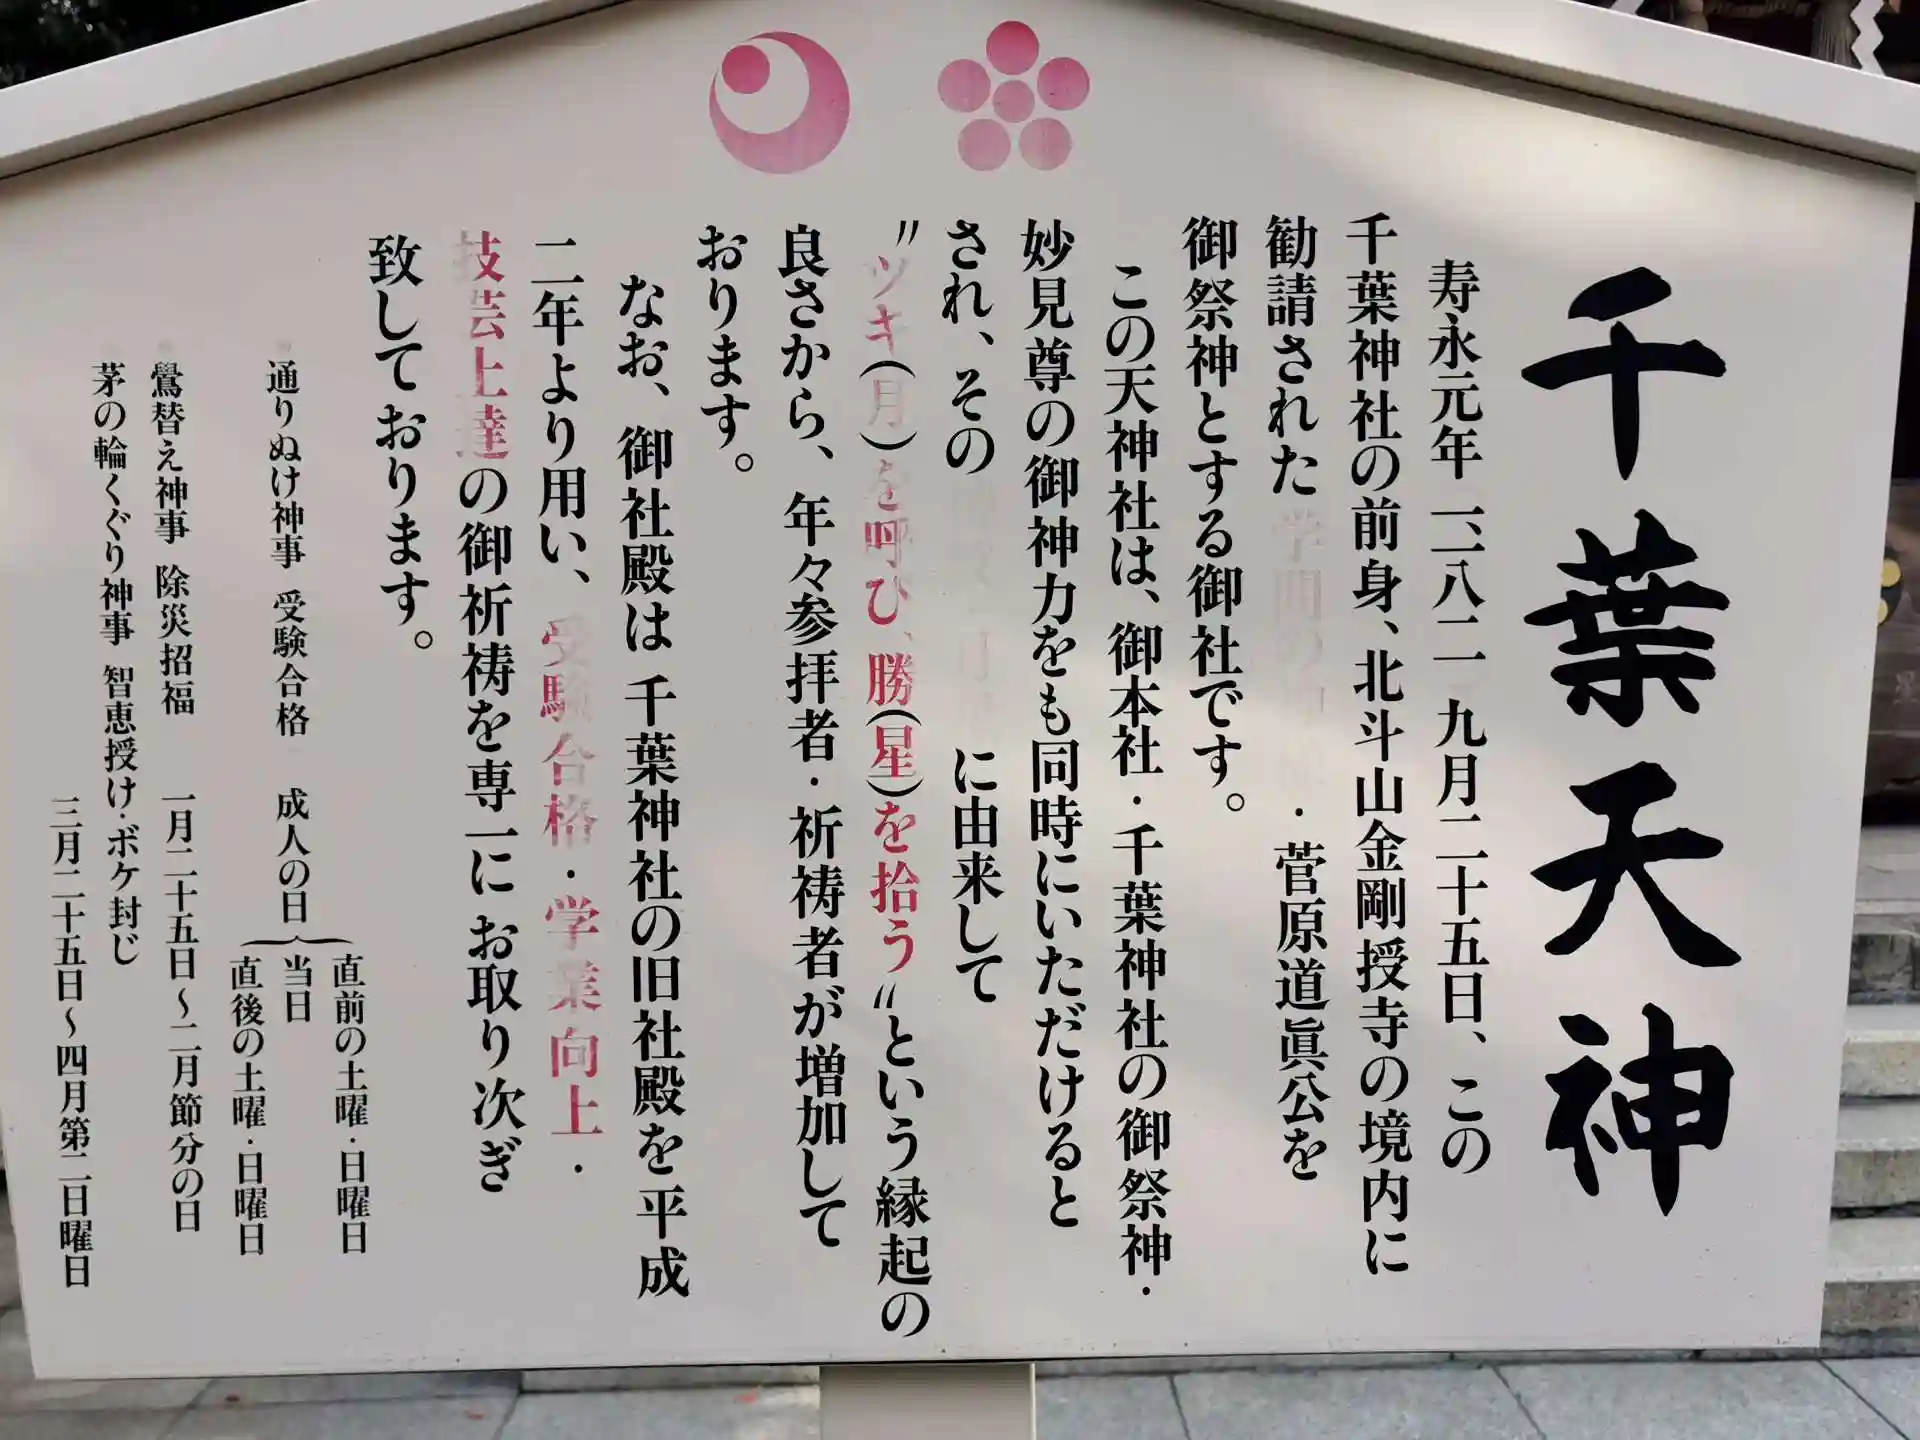 千葉天神
寿永元年一、一八二一九月二十五日、この
千葉神社の前身、北斗山金剛授寺の境内に
勧請された学問の神様・菅原道眞公を
御祭神とする御社です。
この天神社は、御本社・千葉神社の御祭神・
妙見尊の御神力をも同時にいただけると
され、その に由来して
〝ツキ(月)を呼び、勝(星)を拾う〟という縁起の
良さから、年々参拝者・祈祷者が増加して
おります。
なお、御社殿は千葉神社の旧社殿を平成
二年より用い、受験合格・学業向上・
技芸上達の御祈祷を専一にお取り次ぎ
致しております。
通りぬけ神事 受験合格 成人の日
直前の土曜・日曜日
当日
直後の土曜・日曜日
鷽替え神事 除災招福 一月二十五日～二月節分の日
茅の輪くぐり神事 智恵授け・ボケ封じ
三月二十五日～四月第二日曜日